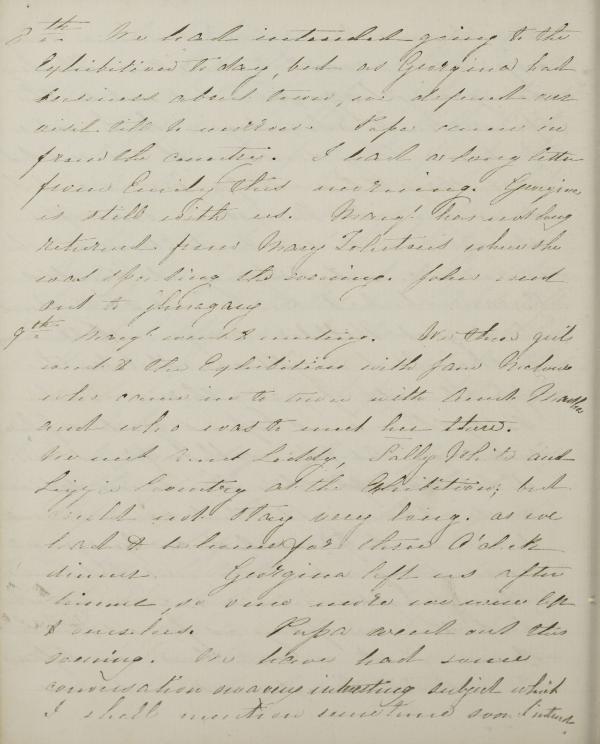 8th We had intended going to the
Exhibition to day, but as Georgina had
business about town, we deferred our
visit till to morrow. Papa came in
from the country. I had a long letter
from Emily this morning. Georgina
is still with us. Margt has not long
returned from Mary where she
was spending the evening. John went
out to
9th Margt went to meeting. We three girls
went to the Exhibition with Jane
who came in to town with Aunt
and who was to meet her there.
We met Aunt Liddy, Sally White and
Lizzie at the Exhibition; but
could not stay very long. as we
had to be home for three O'clock
dinner. Georgina left us after
dinner, so once more we were left
to ourselves. Papa went out this
evening. We have had some
conversation on a very interesting subject which
I shall mention sometime soon I intend